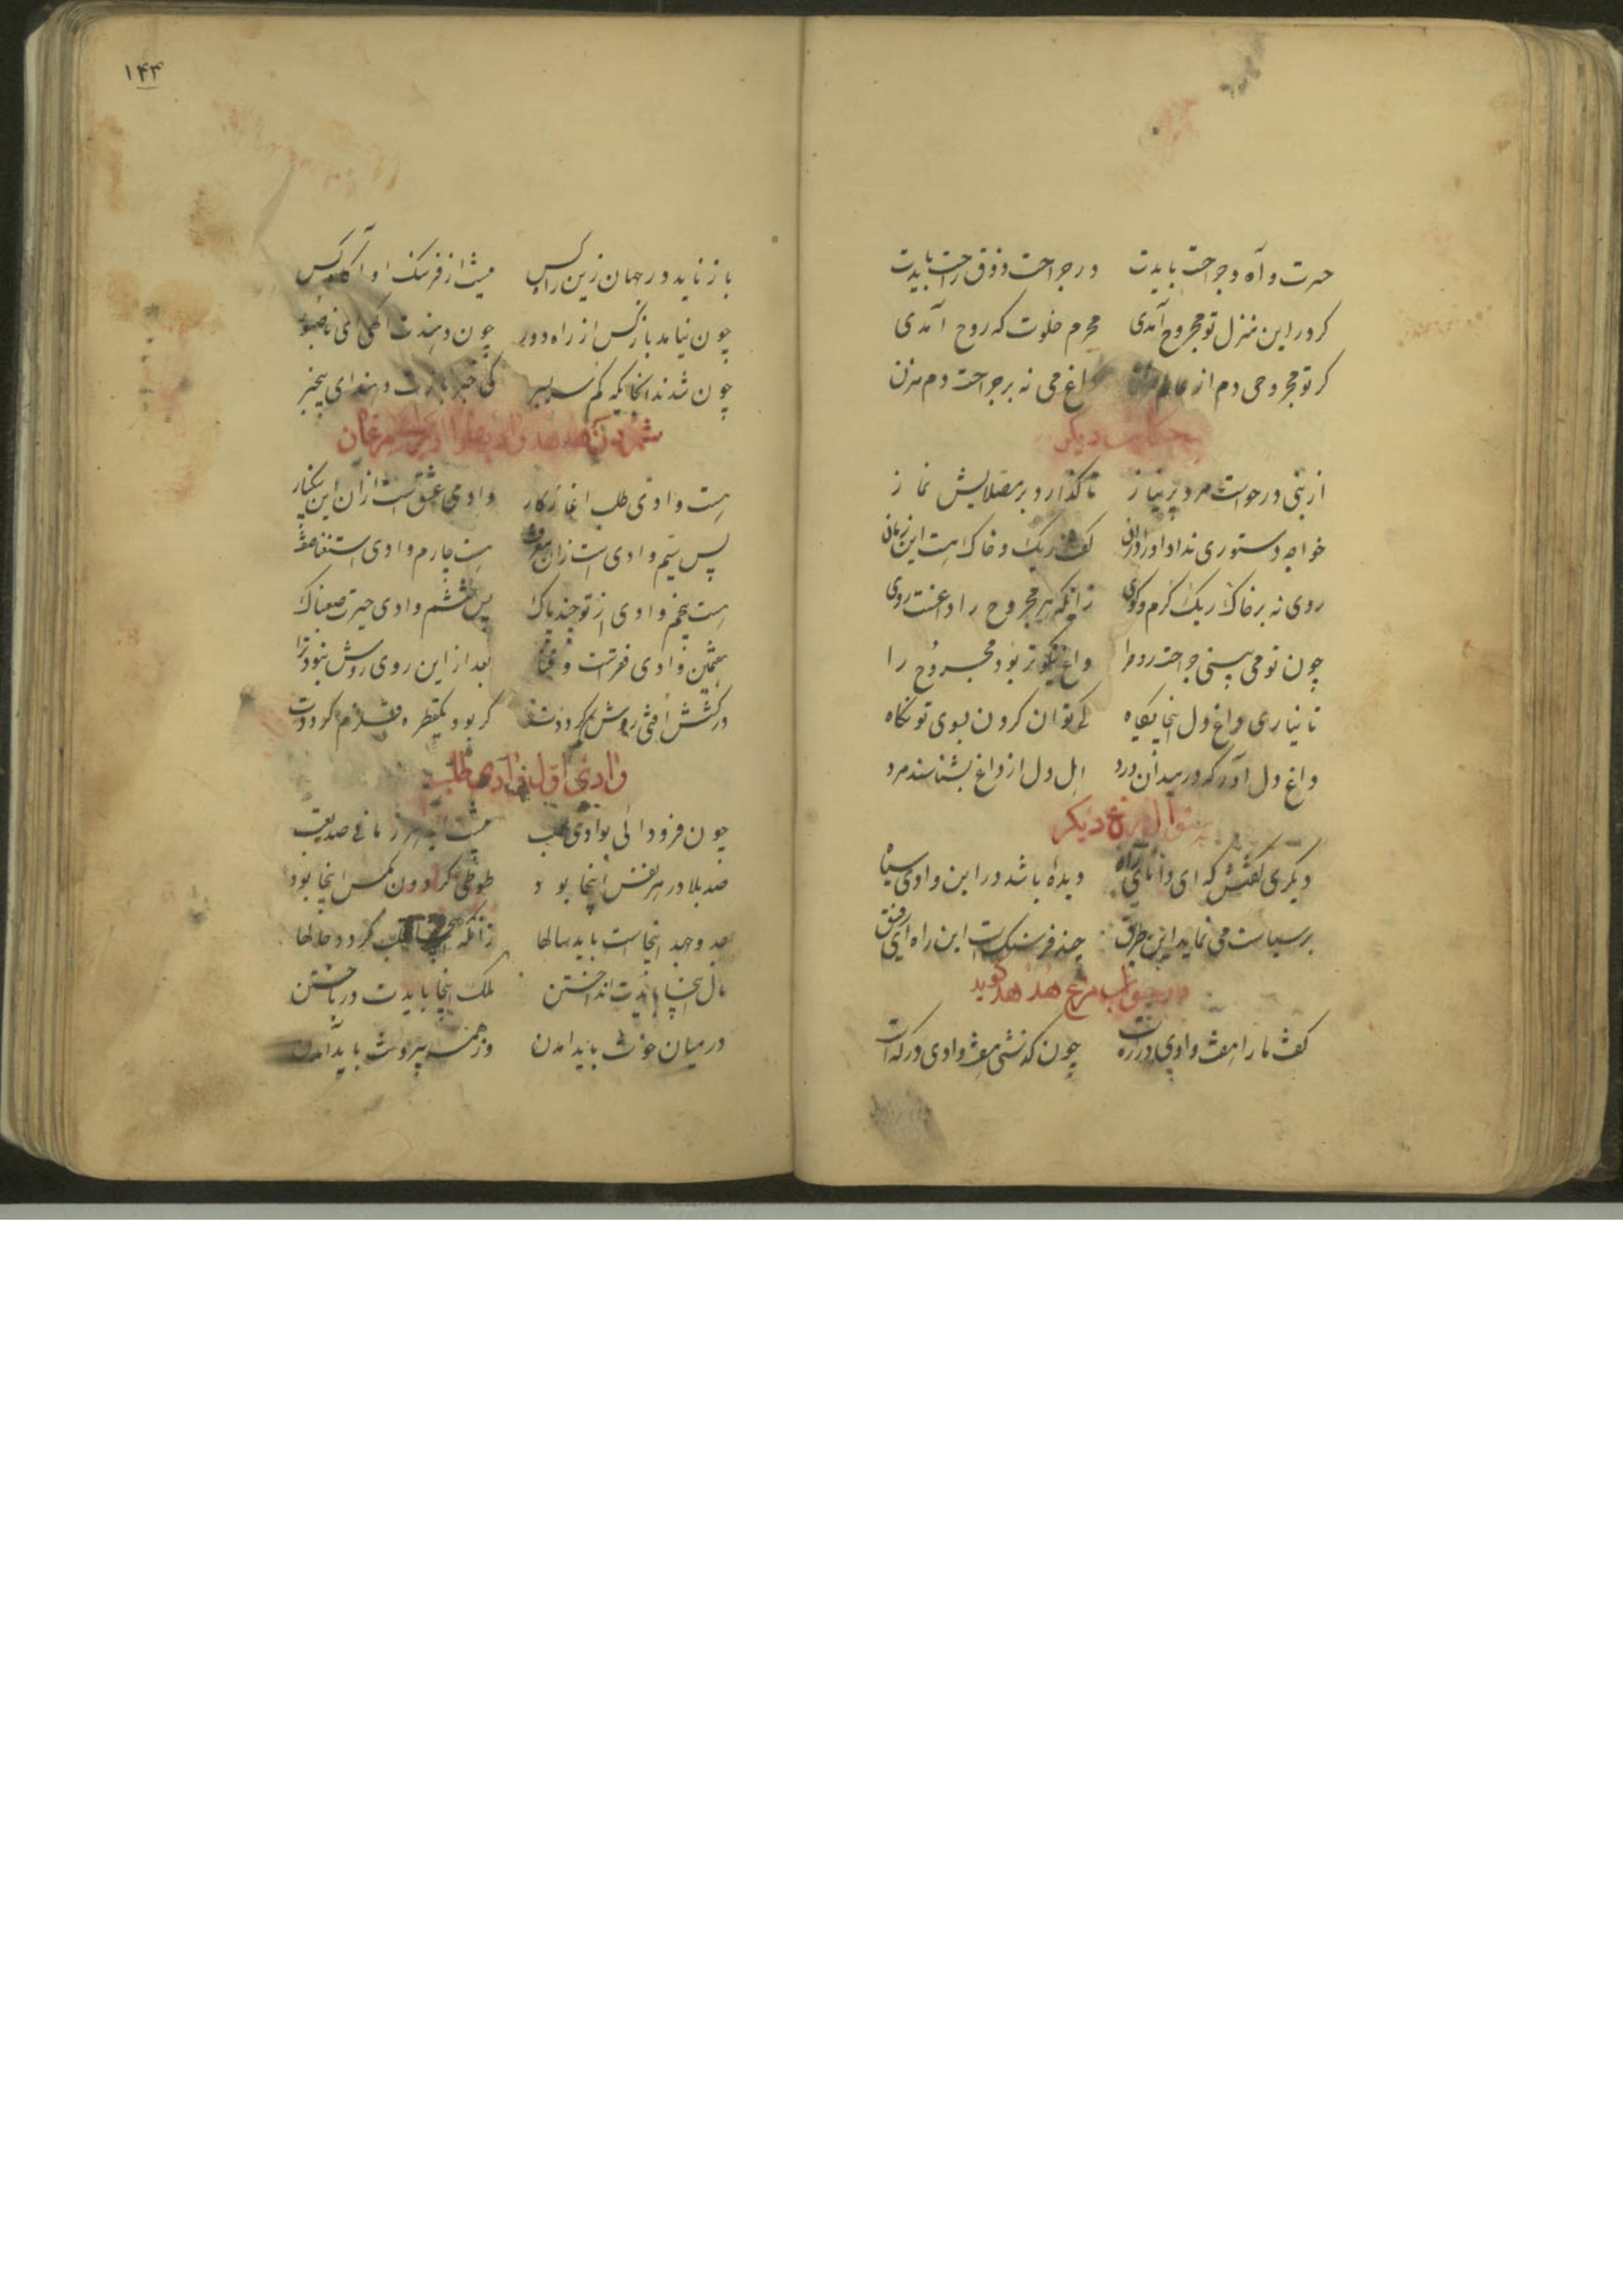 حسرت و آه و جراحت بایدت در جراحت ذوق راحت بایدت
گر درین منزل تو مجروح آمدی محرم خلوت گه روح آمدی
گر تو مجروحی دم از عالم مزن داغ می نه بر جراحت دم مزن
حکایت دیگر
از نبی درخواست مرد پر نیاز تا گذارد بر مصلایش نماز
خواجه دستوری نداد او را دران گفت ریگ و خاک هست این زمان
روی نه بر خاک ریگ گرم و کوی زانکه هر مجروح را داغست روی
چون تو می بینی جراحت روح را داغ نیکوتر بود مجروح را
تا نیاری داغ دل اینجایگاه کی توان کردن بسوی تو نگاه
داغ دل آور که در میدان درد اهل دل از داغ بشناسند مرد
سئوال مرغ دیگر
دیگری گفتش که ای دانای راه دیدهٔ باشد در این وادی سیاه
پر سیاست می نماید این طریق چند فرسنگ است این راه ای رفیق
جواب مرغ هدهد گوید
گفت ما را هفت وادی در ره است چون گذشتی هفت وادی درگه است
۱۴۴
باز ناید در جهان زین راه کس نیست از فرسنگ او آگاه کس
چون نیامد باز کس از راه دور چون دهندت آگهی ای ناصبور
چون شدند آنجایگه گم سر بسر کی خبر بازت دهند ای بیخبر
شمردن هدهد مرغان
هست وادی طلب آغاز کار وادی عشق است از آن این بی کنار
پس سیم وادی است زان معرفت هست چارم وادی استغنا صفت
هست پنجم وادی از توحید پاک پس ششم وادی حیرت صعبناک
هفتمین وادی فقرست و فنا بعد از این روی روش نبود ترا
در کشش افتی روش گم گرددت گر بود یکقطره قلزم گرددت
وادی اول وادی طلب
چون فرود آئی بوادی طلب پیشت آید هر زمانی صد تعب
صد بلا در هر نفس اینجا بود طوطی گردون مگس اینجا بود
جد و جهد اینجاست باید سالها زانکه اینجا قلب گردد حالها
مال اینجا بایدت انداختن ملک اینجا بایدت در باختن
در میان خونت باید آمدن وز همه بیرونت باید آمدن